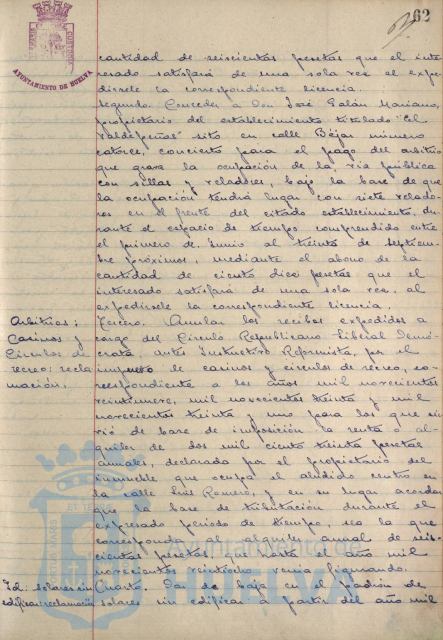 62
AYUNTAMIENTO DE HUELVA
cantidad de seiscientas pesetas que el inte-
resado satisfará de una sola vez al expe-
dirsele la correspondiente licencia.
Segundo. Conceder a Don José Galán Mariano,
propietario del establecimiento titulado "El
Valdepeñas" sito en calle Béjar número
catorce, concierto para el pago del arbitrio
que grava la ocupación de la vía pública
con sillas y veladores, bajo la base de que
la ocupación tendrá lugar con siete velado-
res en el frente del citado establecimiento, du-
rante el espacio de tiempo comprendido entre
el primero de Junio al treinta de Septiem-
bre próximos, mediante el abono de la
cantidad de ciento diez pesetas que el
interesado satisfará de una sola vez, al
expedirsele la correspondiente licencia.
Arbitrios:
Casinos y
Círculos de
recreo: recla
mación.
Tercero. Anular los recibos expedidos a
cargo del Círculo Republicano Liberal Demó-
crata antes Instructivo Reformista, por el
impuesto de casinos y círculos de recreo, co-
rrespondiente a los años mil novecientos
veintinueve, mil novecientos treinta y mil
novecientos treinta y uno para los que sir-
vió de base de imposición la renta o al-
quiler de dos mil ciento treinta pesetas
anuales, declarada por el propietario del
inmueble que ocupa el aludido centro en
la calle Luis Romero, y en su lugar acordar
que la base de tributación durante el
expresado periodo de tiempo, sea la que
corresponda al alquiler anual de seis-
cientas pesetas, que hasta el año mil
novecientos veintiocho venía figurando.
Id. Solares sin
edificar: reclamación
Cuarto. Dar de baja en el padrón de
solares sin edificar a partir del año mil
HUELVA